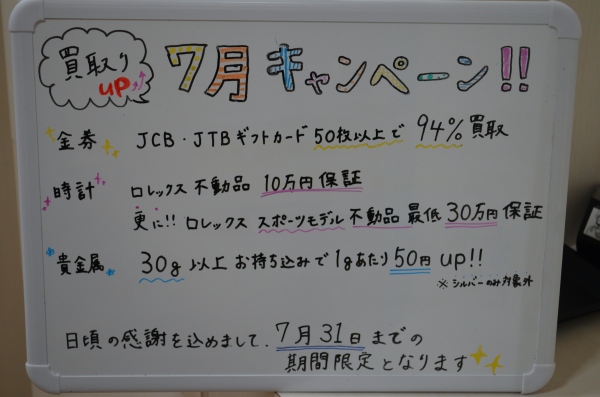 買取り
UP
7月キャンペーン!!
金券 JCB・JTBギフトカード 50枚以上で 94%買取
時計 ロレックス 不動品 10万円保証
更に!! ロレックス スポーツモデル 不動品 最低 30万円保証
貴金属 30g 以上 お持ち込みで 1gあたり 50円 UP!!
※シルバーのみ対象外
日頃の感謝を込めまして、7月31日までの
期間限定となります